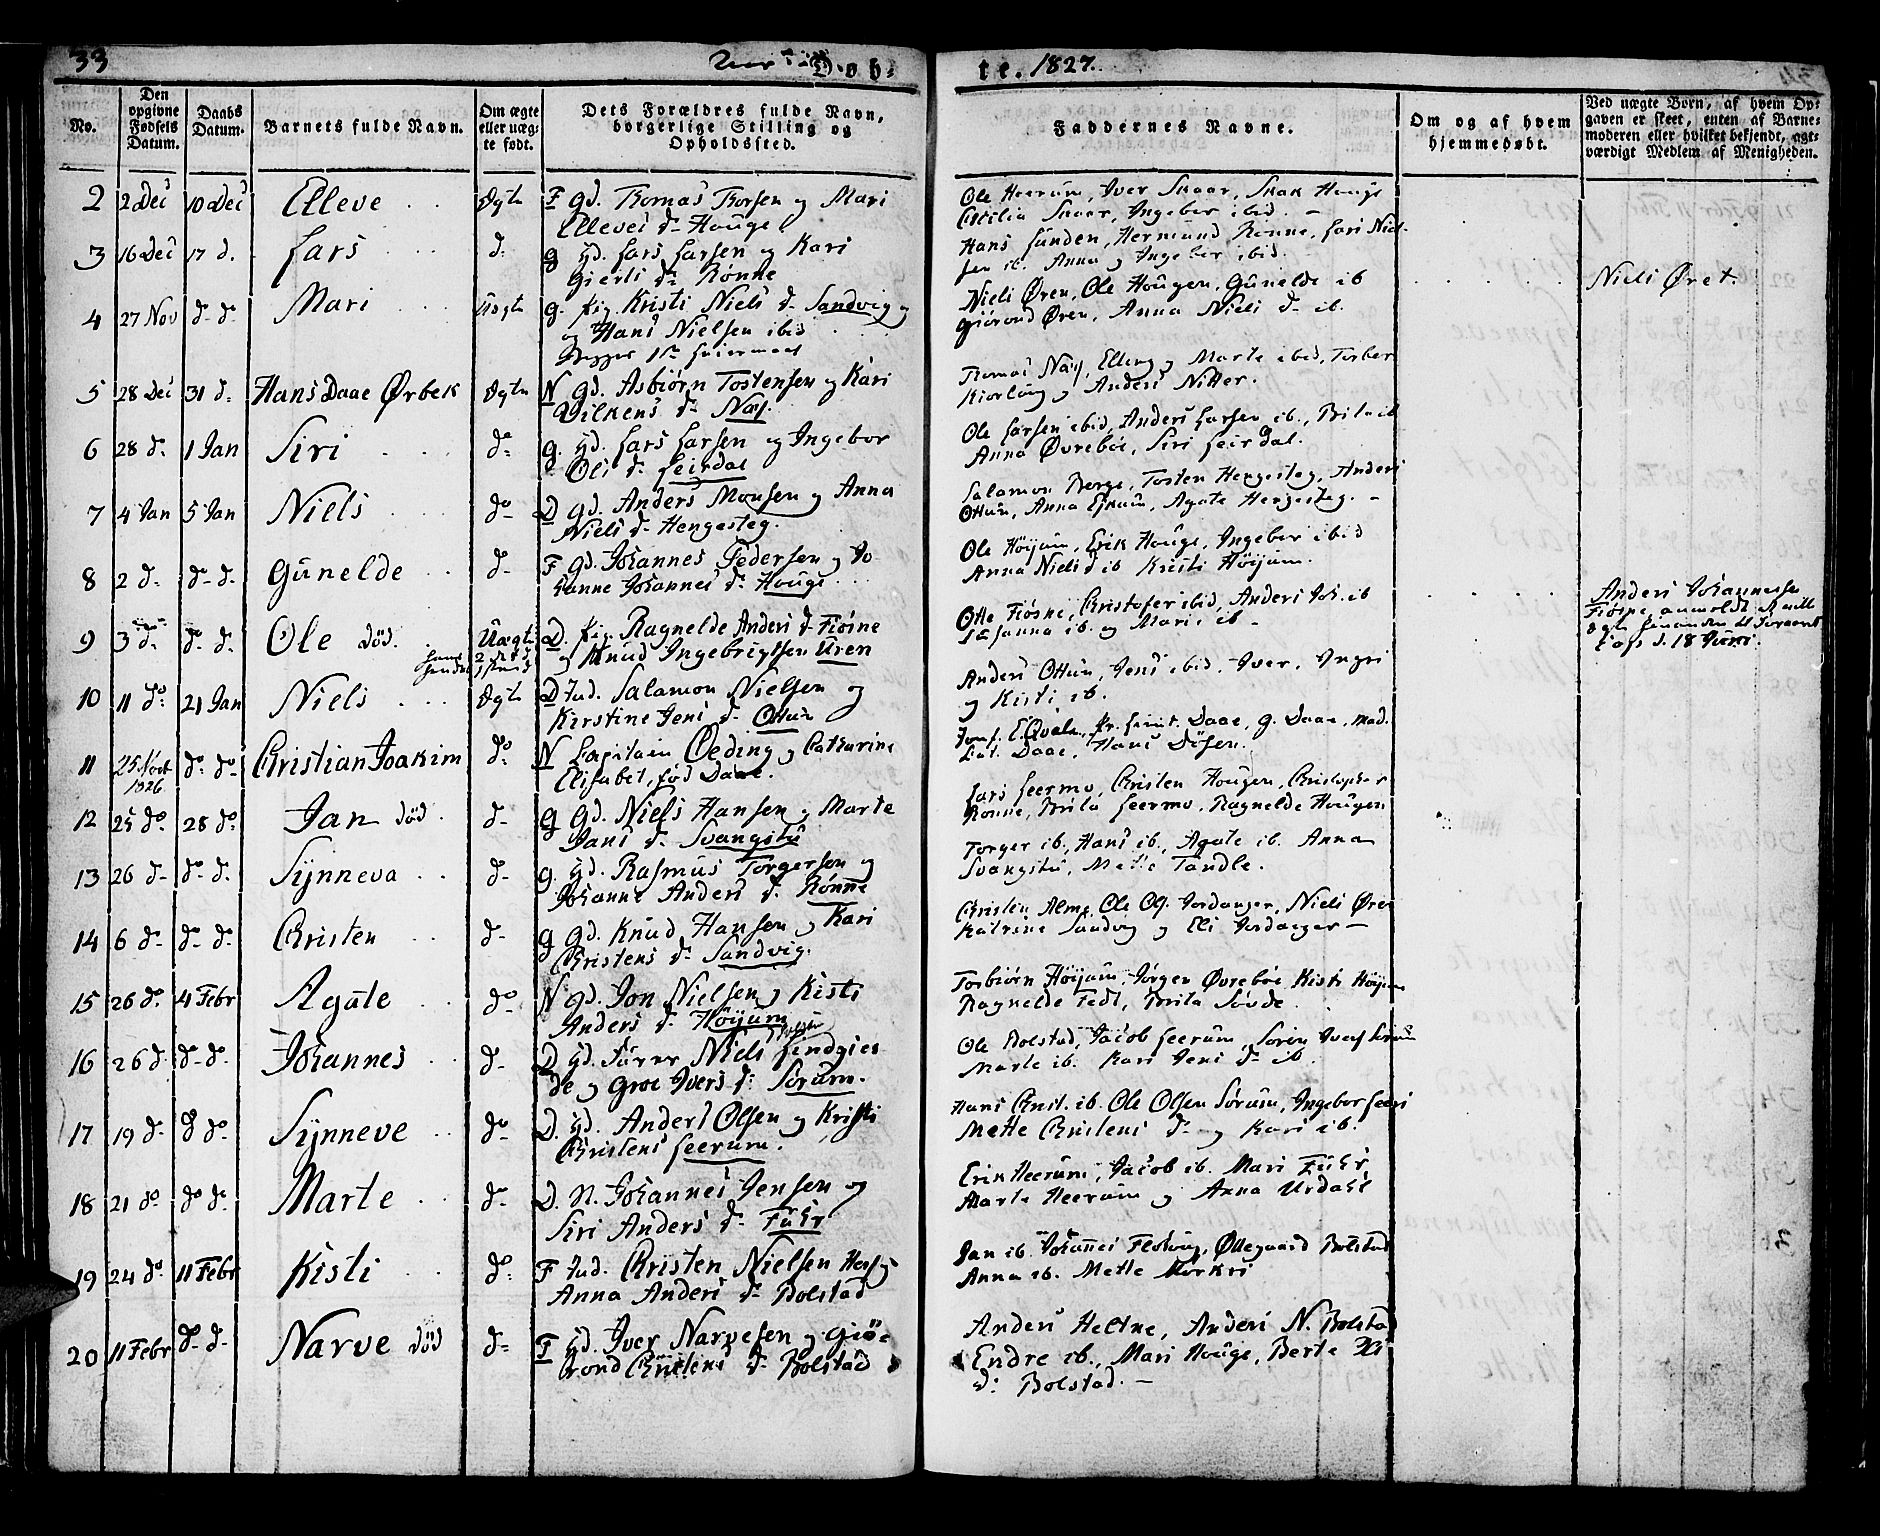 33
Døb-
te. 1827.
No.
Den opgivne Fødsels Datum.
Daabs Datum.
Barnets fulde Navn.
Om ægte eller uæg- te født.
Dets Forældres fulde Navn, borgerlige Stilling og Opholdssted.
Faddernes Navne.
Om og af hvem hjemmedøbt.
Ved uægte Børn, af hvem Op- gaven er skeet, enten af Barne- moderen eller hvilket bekjendt, agt- værdigt Medlem af Menigheden.
2 2 Dec 10 Dec Elleve Ægte F gd. Thomas Thorsen og Mari
Elleves d. Houge
Ole Heerum, Iver Snaar, Isak Houge
Cicilia Snaar, Ingeber ibid. –
3 16 Dec 17 d. Lars d. g yd. Lars Larsen og Kari
Gierts dr Rønne
Hans Sunden, Hermund Rønne, Lars Niel-
sen ib. Anna og Ingeber ibid.
4 27 Nov d. d. Mari Uægte g. pig. Kristi Niels d. Sandvig og
og Hans Nielsen ibid
Niels Øren, Ole Hougen, Gunelde ib
Giørond Øren, Anna Niels d. ib.
Niels Øret.
5 28 Dec 31 d. Hans Daae Ørbek Ægte N gd. Asbiørn Tostensen og Kari
Vilkens d. Næs.
Thomas Næs, Elling og Marte ibid, Torber
Kiorlaug og Anders Nitter.
6 28 d. 1 Jan Siri do g. yd. Lars Larsen og Ingebor
Ols d. Leirdal
Ole Larsen ibid, Anders Larsen ib., Brita ib
Anna Øvrebøe, Siri Leirdal.
7 4 Jan 5 Jan Niels do D gd. Anders Monsen og Anna
Niels d. Hengesteg.
Salamon Berge, Tosten Hengesteg, Anders
Ottum, Anna Eskum, Agate Hengesteg. –
8 2 d. d. d. Gunelde d. F gd. Johannes Pedersen og Jo
hanne Johannes d. Houge
Ole Høijum, Erik Houge, Ingeber ibid
Anna Niels d ib Kristi Høijum.
9 3 d. d. d. Ole død. Uægte D. pig. Ragnelde Anders d. Fiøsne
og Knud Ingebrigtsen Uren
Otte Fiøsne, Christofer ibid, Anders Joh. ib
Johanna ib. og Mari ib –
Anders Johannesen
Fiøsne, anmeldt
10 11 do 21 Jan Niels Ægte D Jud. Salamon Nielsen og
Kirstine Jens d. Ottum
Anders Ottum, Jens ibid. Iver, Ingri
og Kisti ib.
11 25 Novb 1826 do do Christian Joakim do N Capitain Oeding og Catharine
Elisabet, fød Daae.
Jomf. E. Qvale, Pr. Leint. Daae, G. Daae, Mad.
Cat. Daae, Hans Døsen.
12 25 do 28 do Jan død. d. g gd. Niels Hansen og Marte
Jans d. Svangstu
Lars Leermo, Christen Hougen, Christopher
Rønne, Brita Leermo, Ragnelde Hougen
13 26 d. do d. Synneva d. g. yd. Rasmus Torgersen og
Johanne Anders d. Rønne
Torger ib., Hans ib., Agate ib. Anna
Svangstu, Mette Tandle.
14 6 d. do d. Christen d. g gd. Knud Hansen og Kari
Christens d. Sandvig.
Christen Alme, Ole Ols. Jordanger, Niels Øren
Katrine Sandvig og Eli Jordanger –
15 26 do. 4 Febr Agate do N gd. Jon Nielsen og Kisti
Anders d. Høijum
Torbiørn Høijum, Jørgen Øvrebøe, Kisti Høijum
Ragnelde Fedt, Brita Sovde
16 26 d. d. d. Johannes d. D yd. Niels Lindgies
de og Groe Ivers d. Sørum.
Ole Bolstad, Jacob Leerum, Søren Ivers Sørum
Marte ib. Kari Jens d. ib
17 19 d. d do Synneve do D. yd. Anders Olsen og Kristi
Christens Leerum.
Hans Christ. ib. Ole Olsen Sørum, Ingebor Leeri
Mette Christens d. og Kari ib.
18 21 do do d. Marte d. D. N. Johannes Jensen og
Siri Anders d. Fuhr
Erik Heerum, Jacob ib. Mari Fuhr,
Marte Heerum og Anna Urdahl
19 24 do 11 Febr Kisti do F Jud. Christen Nielsen Hes og
Anna Anders d. Bolstad
Jan ib. Johannes Flohaug, Øllegaard Bolstad
Anna ib. Mette Mørkri
20 11 Febr d. d. Narve død d. F yd. Iver Narvesen og Giø-
rond Christens d. Bolstad
Anders Heltne, Anders N. Bolstad
Endre ib., Mari Houge, Berte
d. Bolstad. –